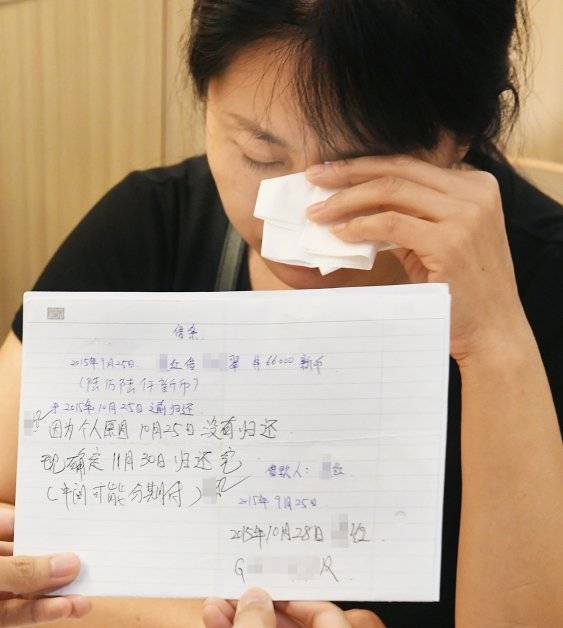 借条
2015年9月25日 红借 翠 $66000 新币
(陆万陆仟新币)
于2015年10月25日之前归还
因为个人原因10月25日没有归还
现确定11月30日归还完
(中间可能分期付)
借款人:
2015年9月25日
2015年10月28日
G R